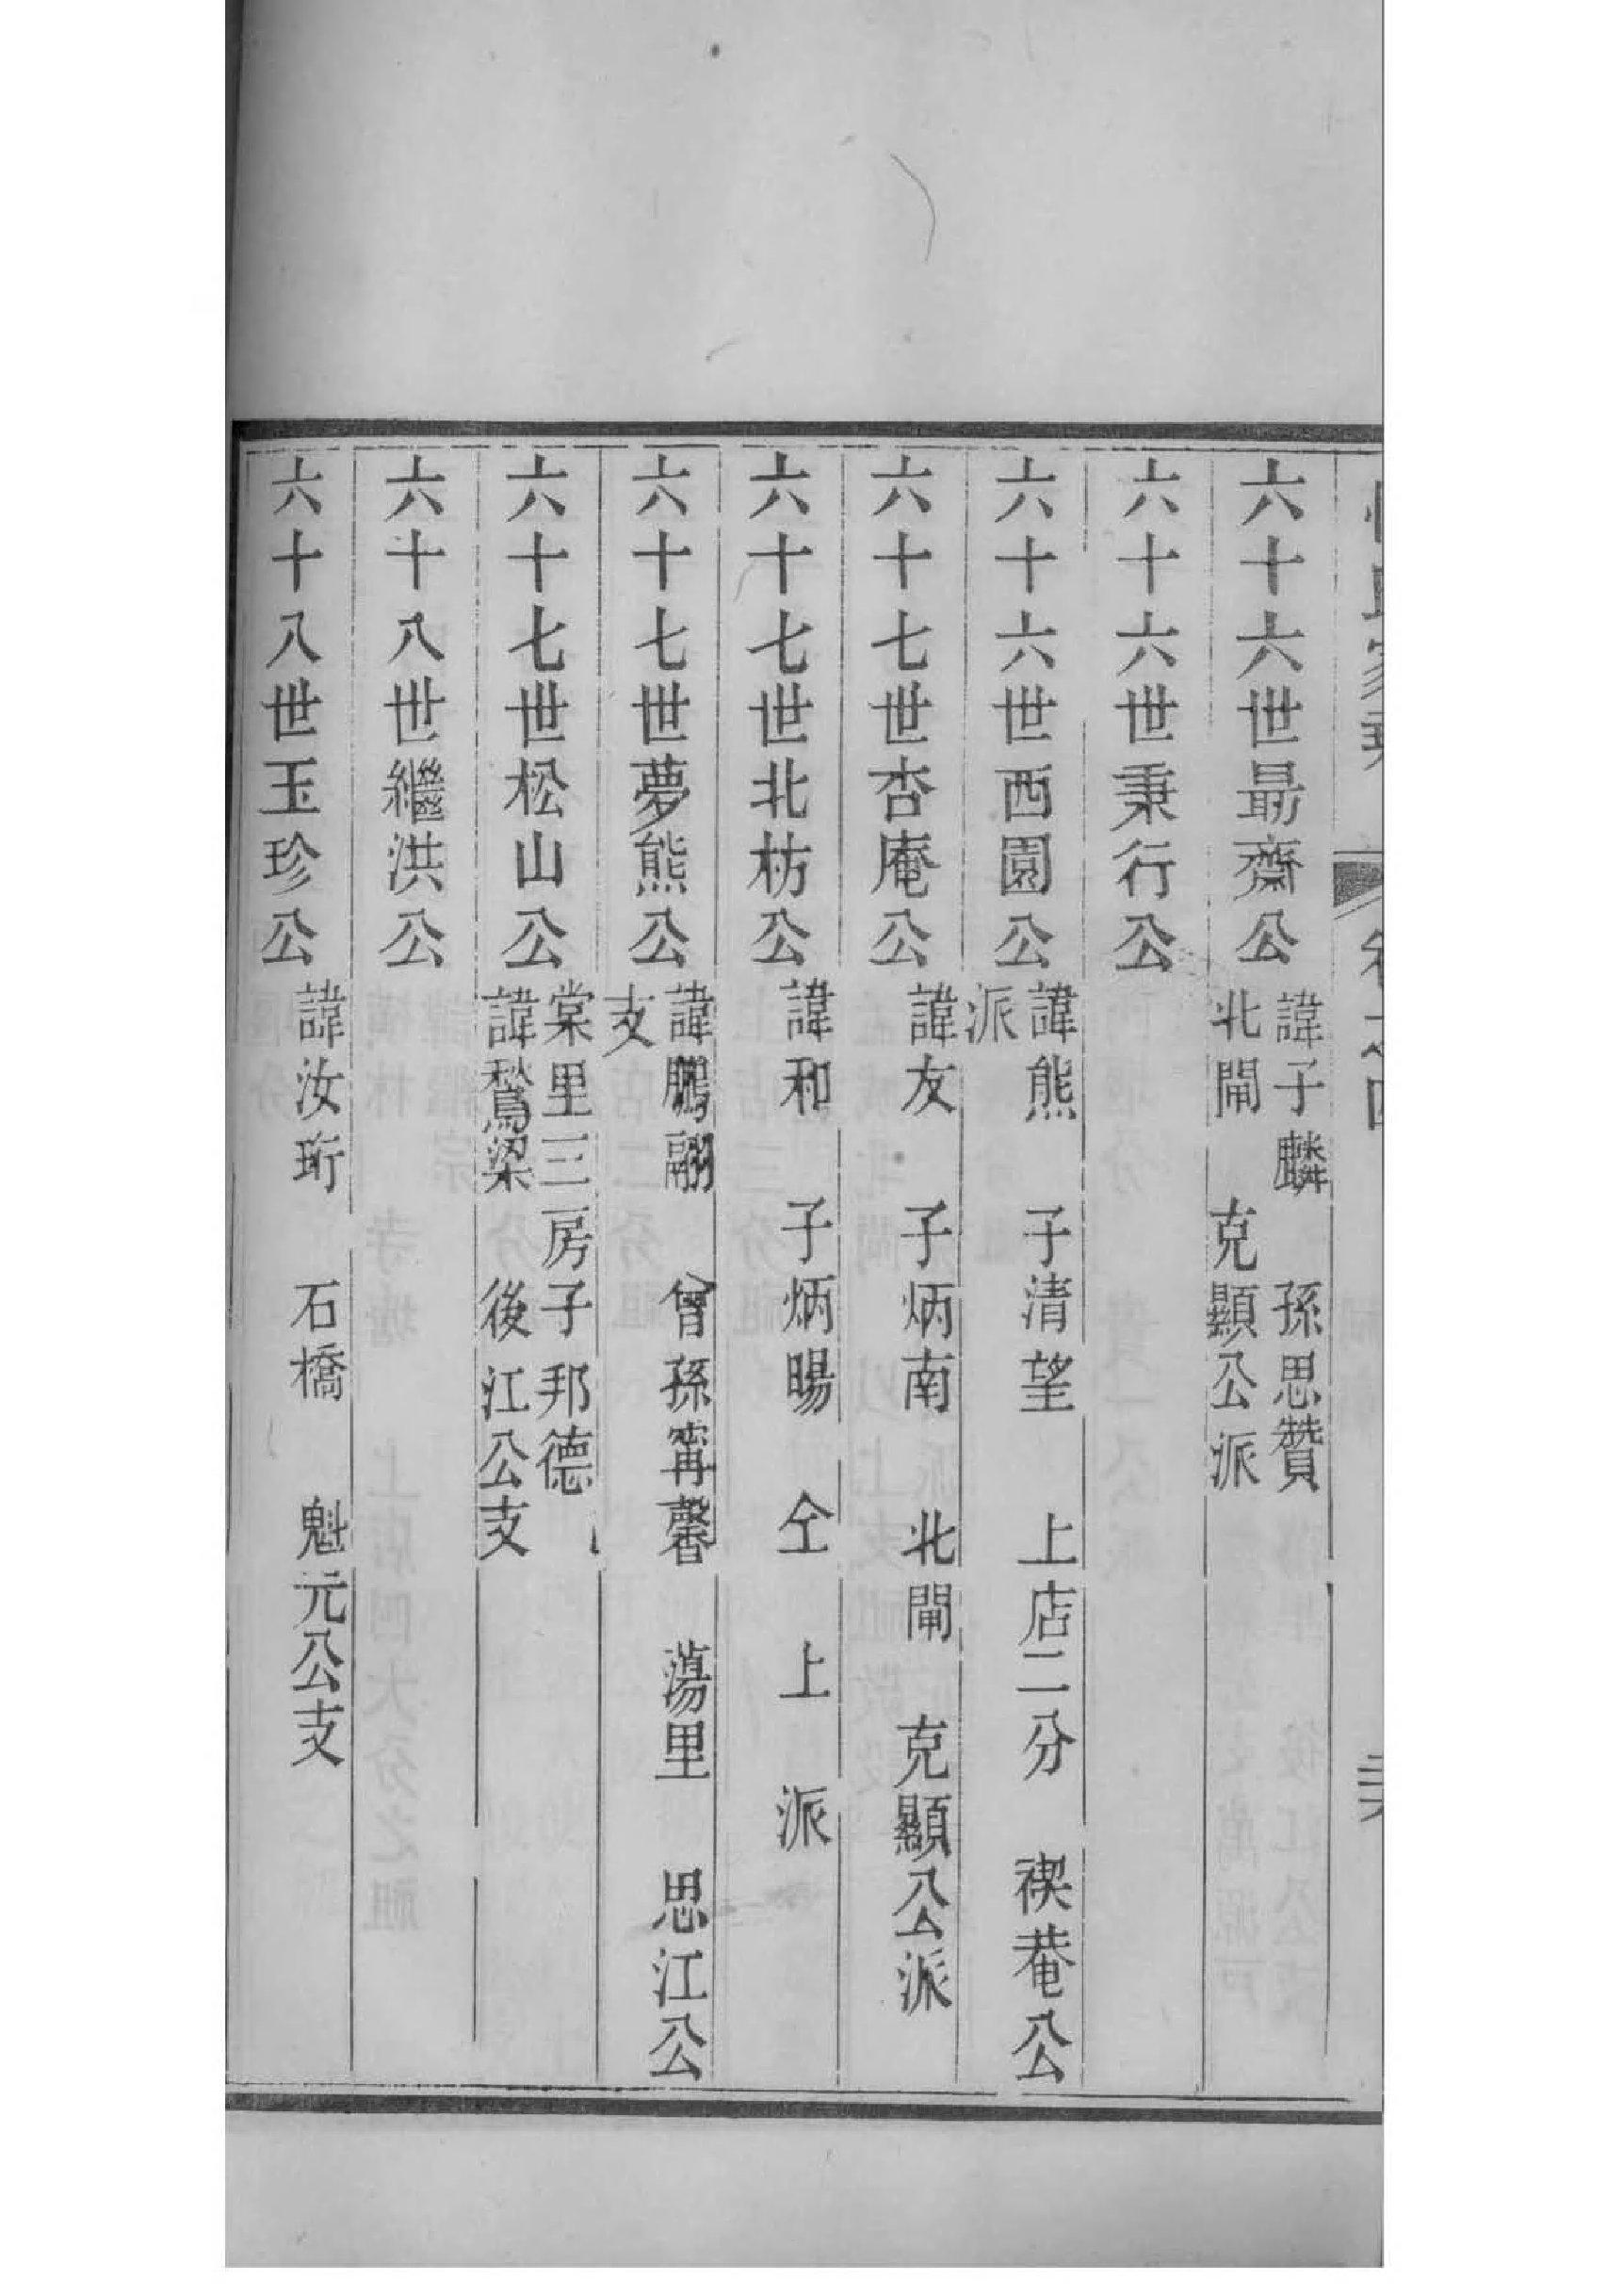 六十六世最齋公 諱子麟 孫思贊
北閘 克顯公派
六十六世秉行公
六十六世西園公 諱熊 子清望 上店二分 禊菴公
派
六十七世杏庵公 諱友 子炳南 北閘 克顯公派
六十七世北枋公 諱和 子炳暘 仝上派
六十七世夢熊公 諱鵬翮 曾孫甯馨 蕩里 思江公
支
六十七世松山公 棠里三房子邦德
諱鶖梁 後江公支
六十八世繼洪公
六十八世玉珍公 諱汝珩 石橋 魁元公支